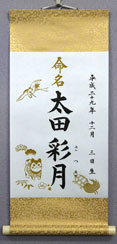 平成二十九年 十二月 三日 生
命名
太田 彩月
さつ